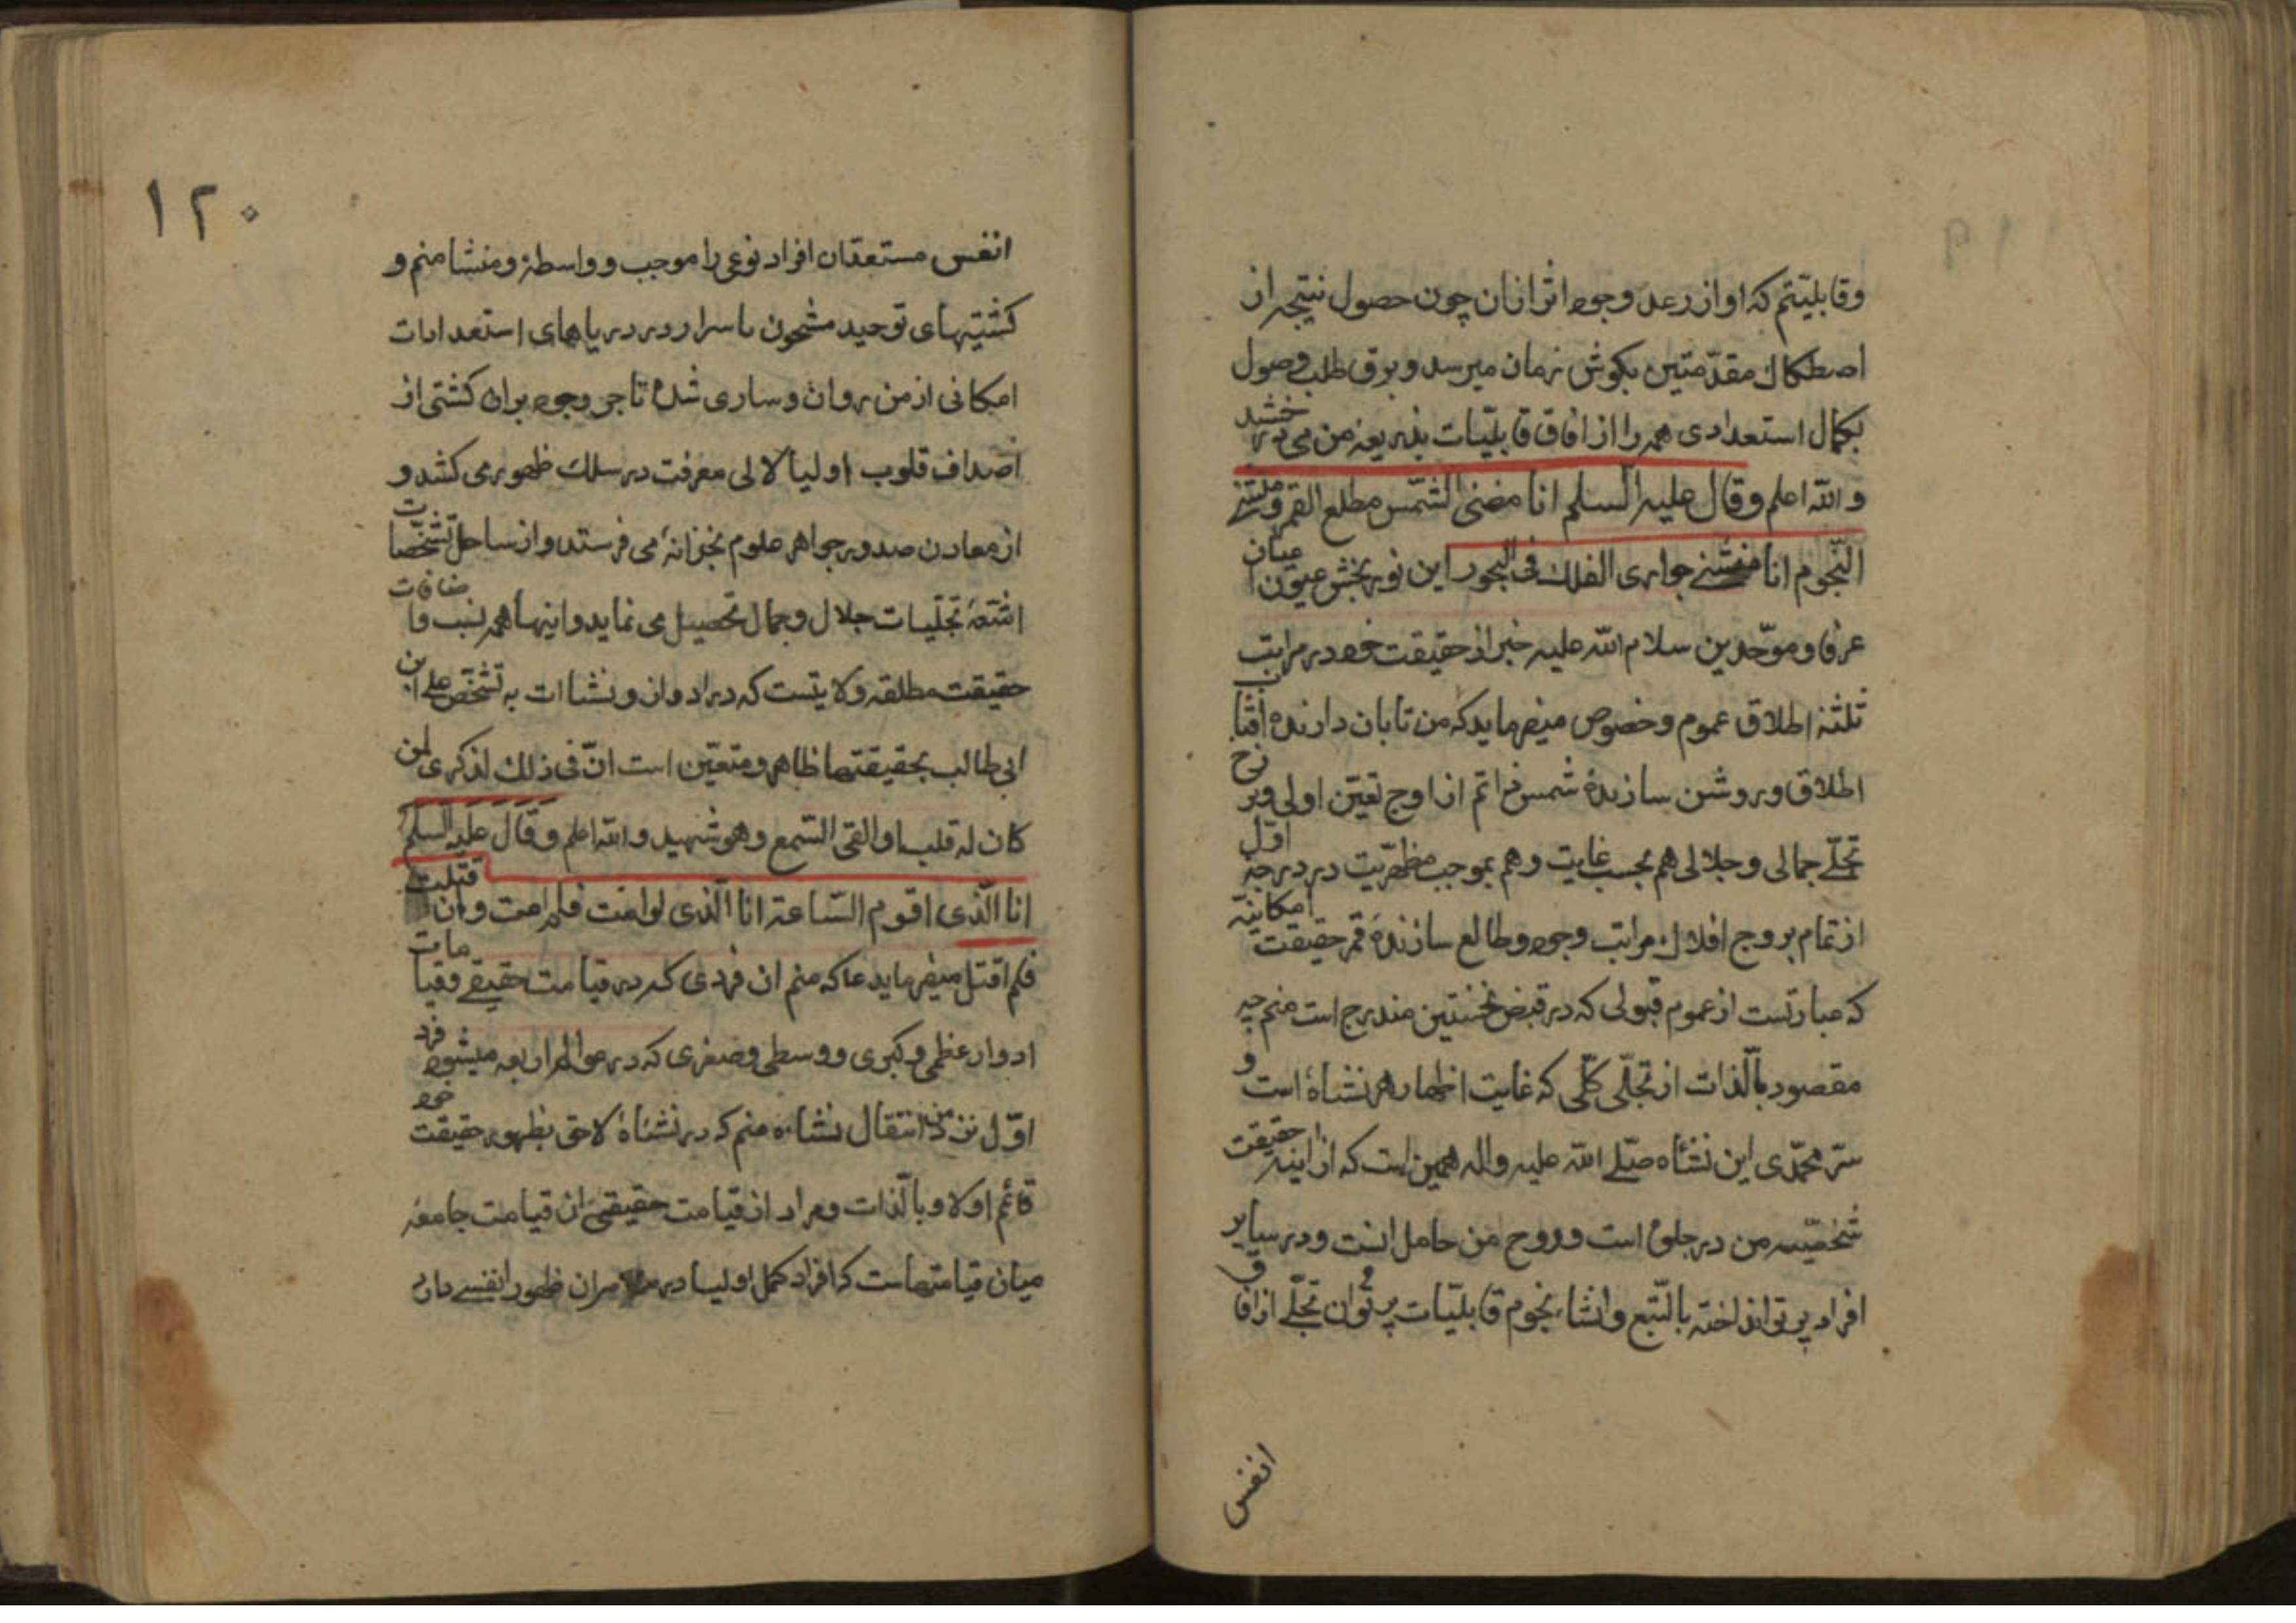 وقابلیتم که اواز رعد وجود اثر ازان چون حصول نتیجه از
اصطکاک مقدّمتین بکوش زمان میرسد و برق طلب وصول
بکمال استعدادی همه را از افاق قابلیّات بذریعه من می درخشد
والله اعلم وقال علیه السلم انا مضئ الشّمس مطلع القمر ومنشئ
النّجوم انا منشئ جواری الفلك فی البحور این نوربخش عیون اعیان
عرفا و موحّدین سلام الله علیه خبر از حقیقت خود در مراتب
ثلثه اطلاق عموم وخصوص میفرماید که من تابان دارنده افتاب
اطلاق و روشن سازندهٔ شمس ذاتم از اوج تعیّن اولی وبرزخ
تجلّے جمالی و جلالی هم بحسب غایت وهم بموجب مظهریّت در درجه اوّل
از تمام بروج افلاك مراتب وجود وطالع سازندهٔ قمر حقیقت امکانیّه
که عبارتست از عموم قبولی که در قبض نخستین مندرج است منم چه
مقصود بالّذات از تجلّی کلّی که غایت اظهار هر نشاه است و
سرّ محمّدی این نشاه صلّے الله علیه واله همین است که از اینه حقیقت
شخصیّه من در جلوه است وروح من حامل انست ودر سایر
افراد پرتو انداخته بالتّبع وانشاء نجوم قابلیّات پرتوان تجلّے از افاق
انفس
۱۲۰
انفس مستعدان افراد نوعی را موجب و واسطه ومنشا منم و
کشتیهای توحید مشحون باسرار در دریاهای استعدادات
امکانی از من روان وساری شده تا جر وجود بران کشتی از
اصداف قلوب اولیا لالی معرفت در سلك ظهور می کشد و
از معادن صدور جواهر علوم بخزانهٔ می فرستد و از ساحل تشخّصات
اشعّهٔ تجلّیات جلال وجمال تحصیل می نماید واینها همه نسب واضافات
حقیقت مطلقه ولایتست که در ادوار ونشاات به تشخّص علی ابن
ابی طالب بحقیقتها ظاهر ومتعیّن است انّ فی ذلك لذکری لمن
کان له قلب او القی السّمع وهو شهید والله اعلم وقال علیه السلم
انا الّذی اقوم السّاعة انا الّذی لو امت فلم امت وان قتلت
فلم اقتل میفرماید عا که منم ان فردی که در قیامت حقیقے وقیامات
ادوار عظمی وکبری و وسطی وصغری که در عوالم اربعه میشود فرد
اوّل نزد من انتقال نشاه منم که در نشاهٔ لاحق بظهور حقیقت خود
قائم اولا وبالّذات ومراد از قیامت حقیقی ان قیامت جامعه
میان قیامتهاست که افراد کمل اولیا در ان ظهور انفسے دارد